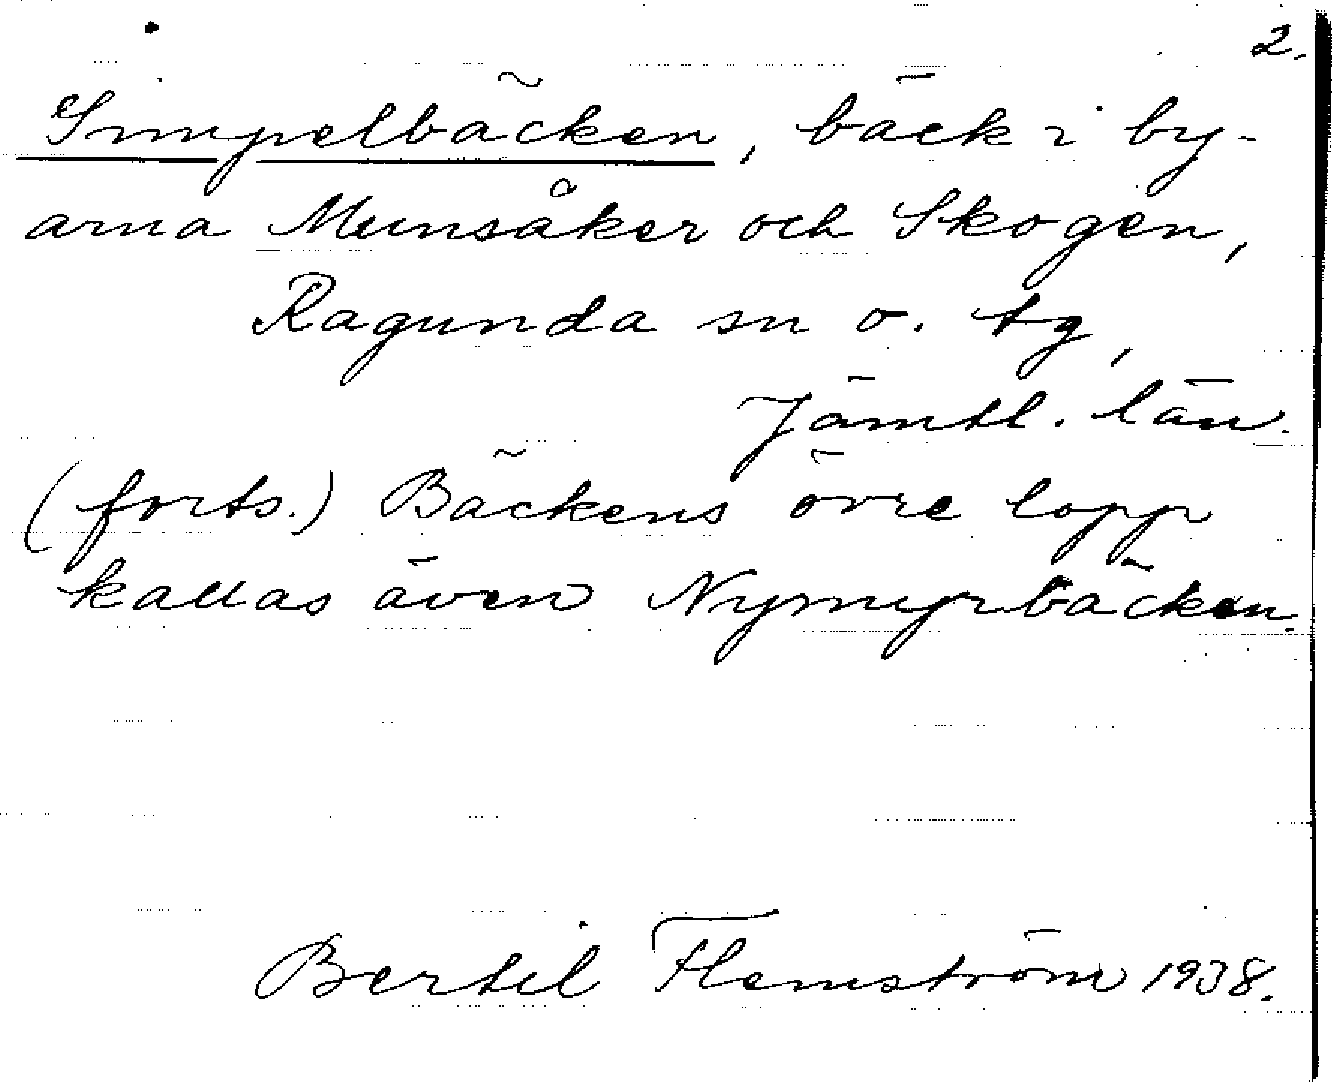 2.
Simpelbäcken, bäck i by-
arna Munsåker och Skogen,
Ragunda sn o. tg,
Jämtl. län.
(forts.) Bäckens övre lopp
kallas även Nymyrbäcken.
Bertil Flemström 1938.